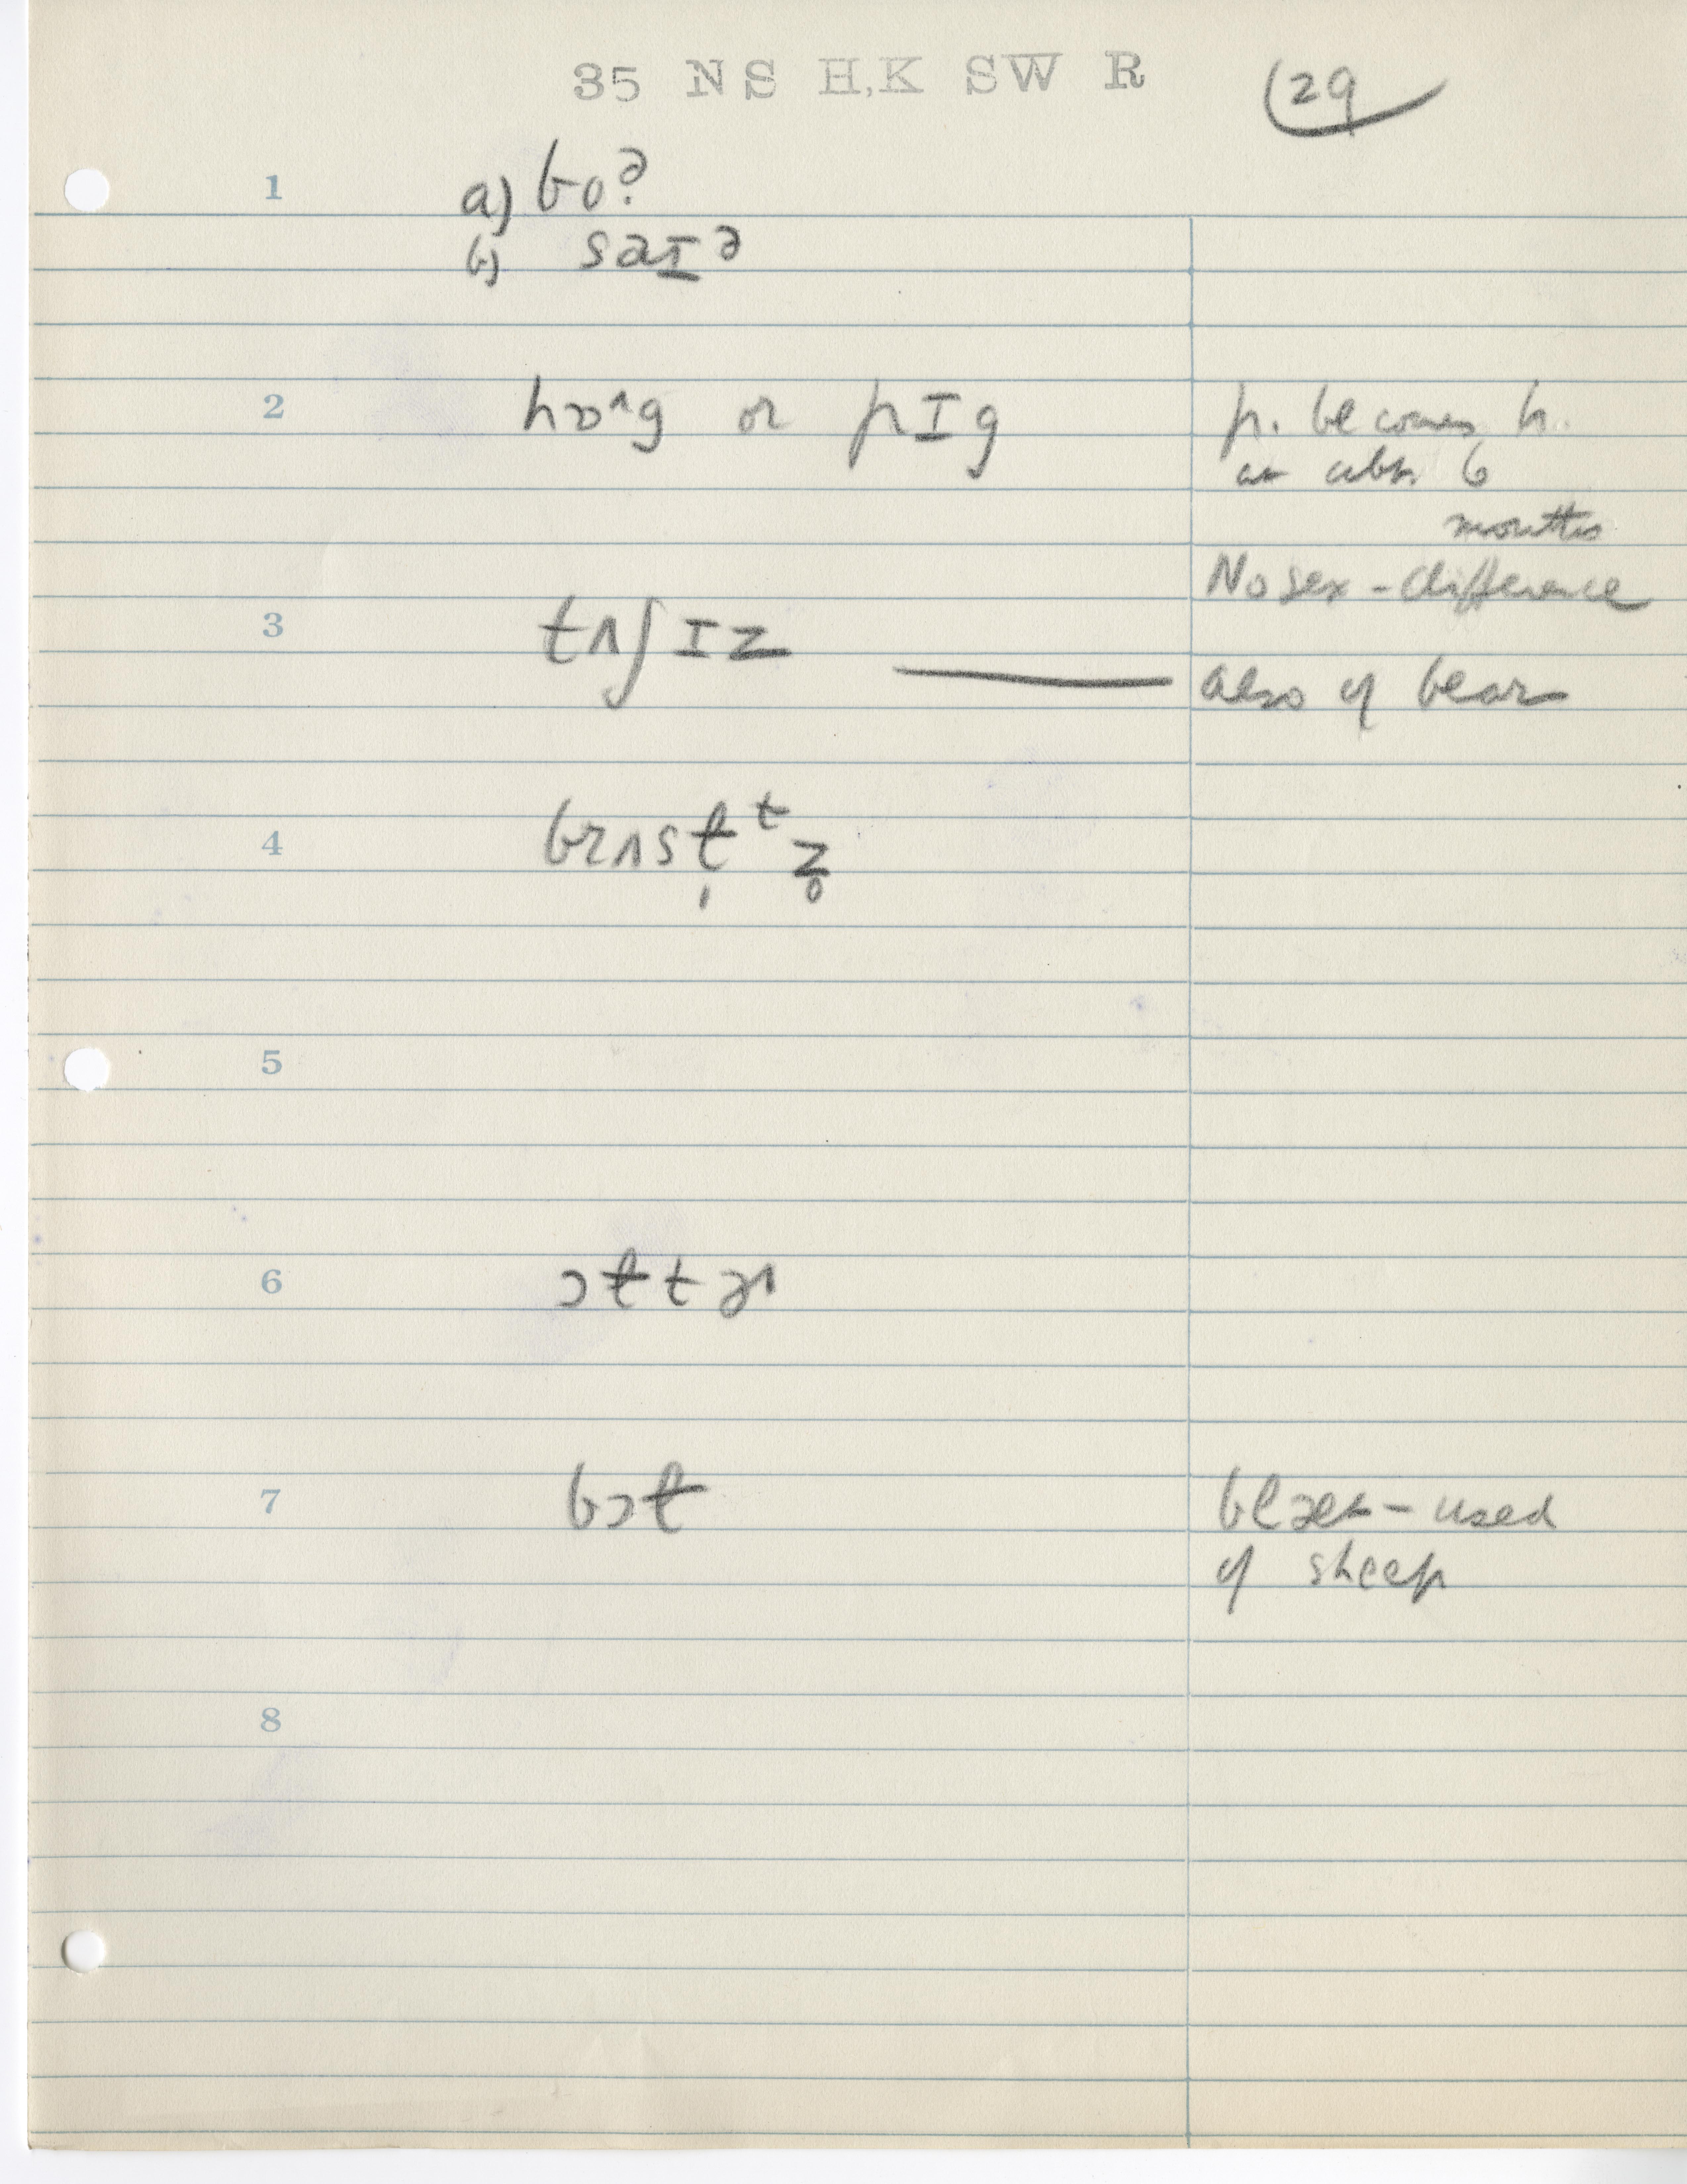 35 NS H,K SW R (29
1 a) bo?ᵊ
b) saɪə
2 hɒ^g or pIg p. becomes h.
at abt. 6
months
No sex-difference
3 tʌʃIz — also of bear
4 brʌst ᵗ z̥
5
6 ɔt t ə
7 bɔt blæt - used
of sheep
8